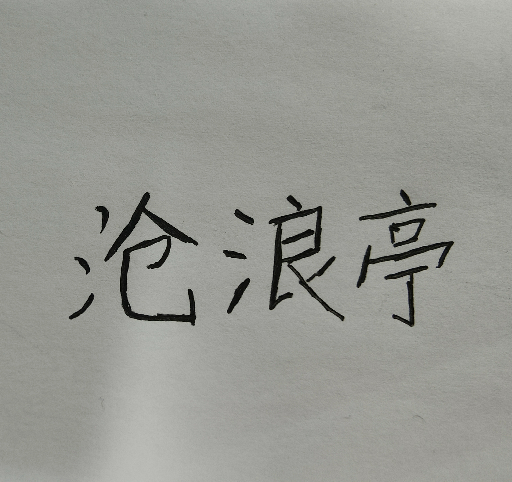 沧浪亭